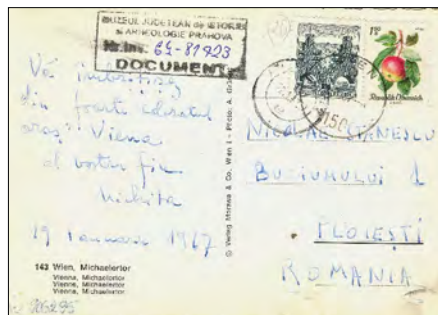 MUZEUL JUDEȚEAN DE ISTORIE
ȘI ARHEOLOGIE PRAHOVA
Nr. inv. 64-81923
DOCUMENT
Vă îmbrățișez
din foarte
oraș Viena
al vostru fiu
Nichita
19 ianuarie 1967
143 Wien, Michaelertor
Vienna, Michaelertor
Vienna, Michaelertor
Vienna, Michaelertor
© Verlag
Co., Wien
Photo: A.
WIEN
150
Republik Österreich
NICOLAE STĂNESCU
BUCIUMULUI 1
PLOIEȘTI
ROMANIA